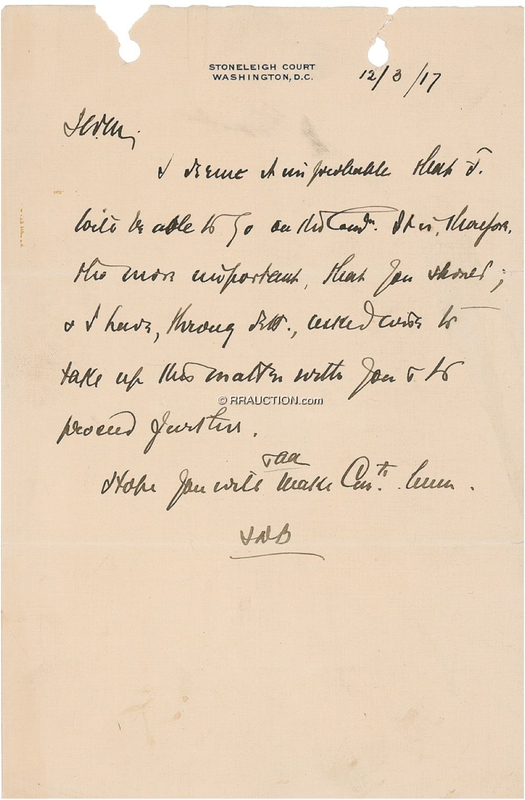 STONELEIGH COURT
WASHINGTON, D.C.
12/3/17
I deem it improbable that F.
will be able to go on the Com. It is, therefore,
the more important, that you should;
& I have, through Dett., asked to
take up this matter with you & to
proceed further.
© RRAUCTION.com
Hope you will make Com.
LDB